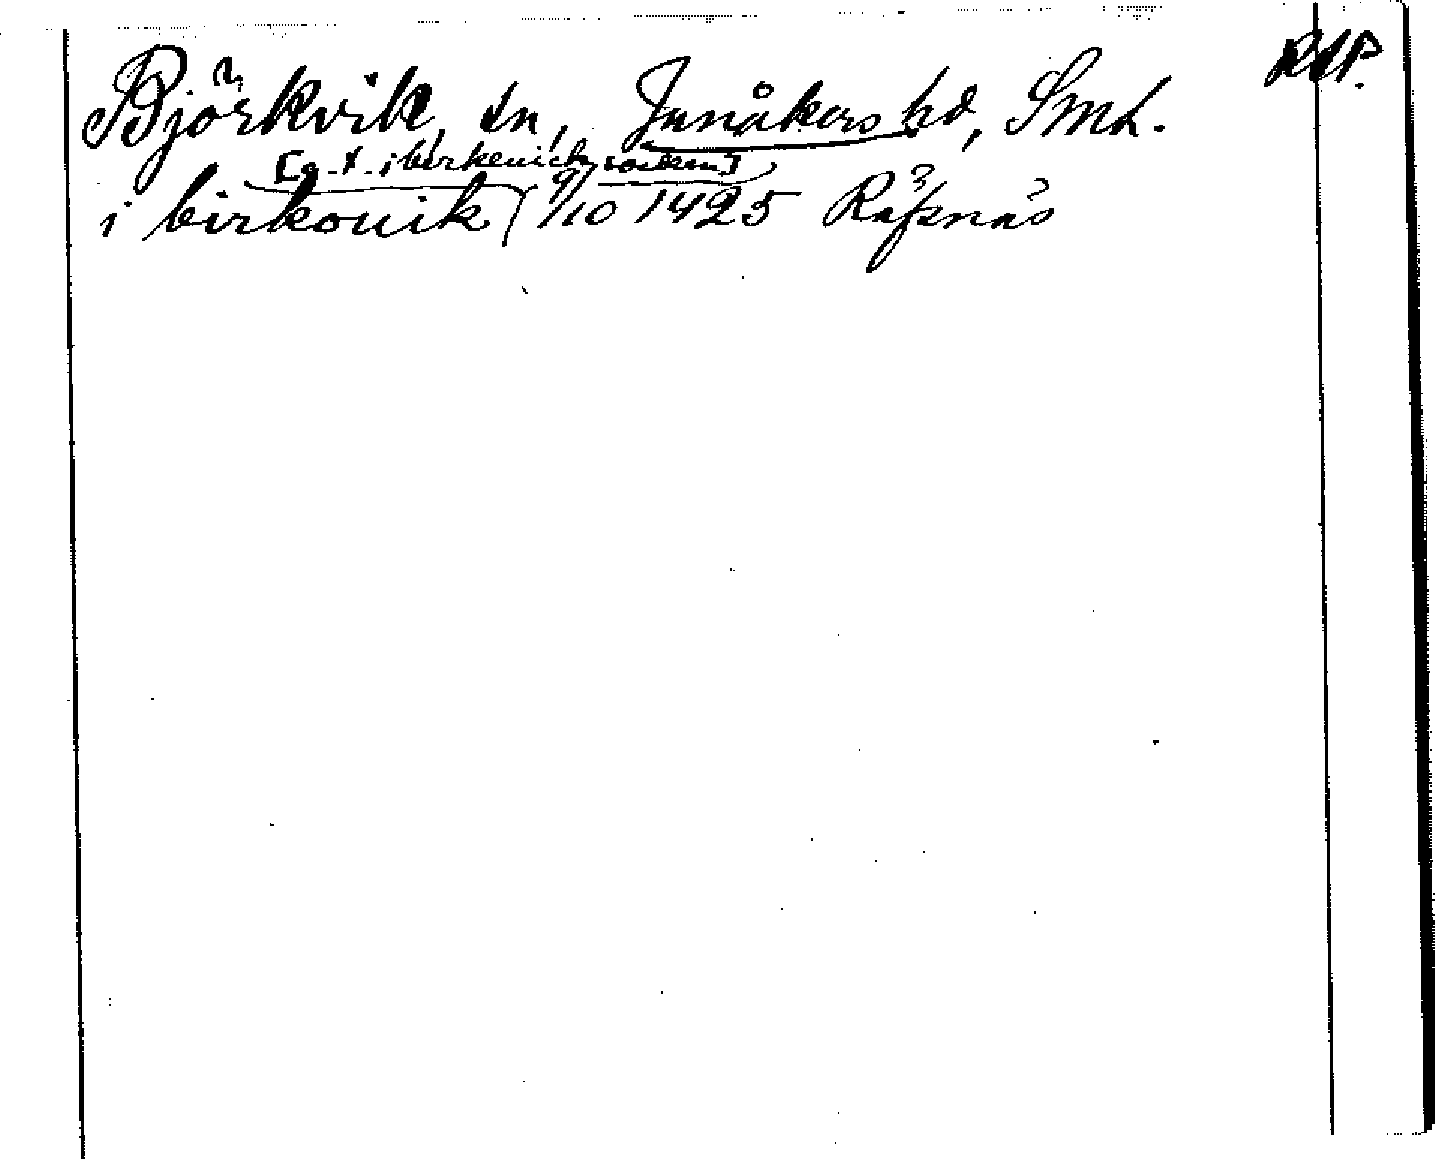 Björkvik, sn, Jonåkers hd, Sml. RAP.
[o. t. i birkeuich, socken]
i birkouik ( 9/10 1425 Räfsnäs